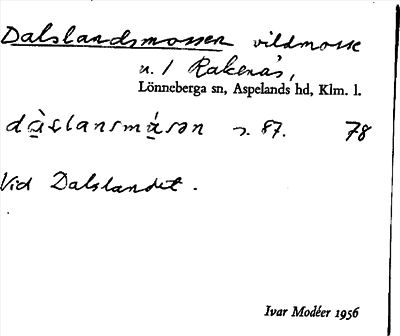 Dalslandsmossen vildmosse
u. 1 Rakenäs,
Lönneberga sn, Aspelands hd, Klm. l.
dàslansmásən s. 87. 78
Vid Dalslandet.
Ivar Modéer 1956